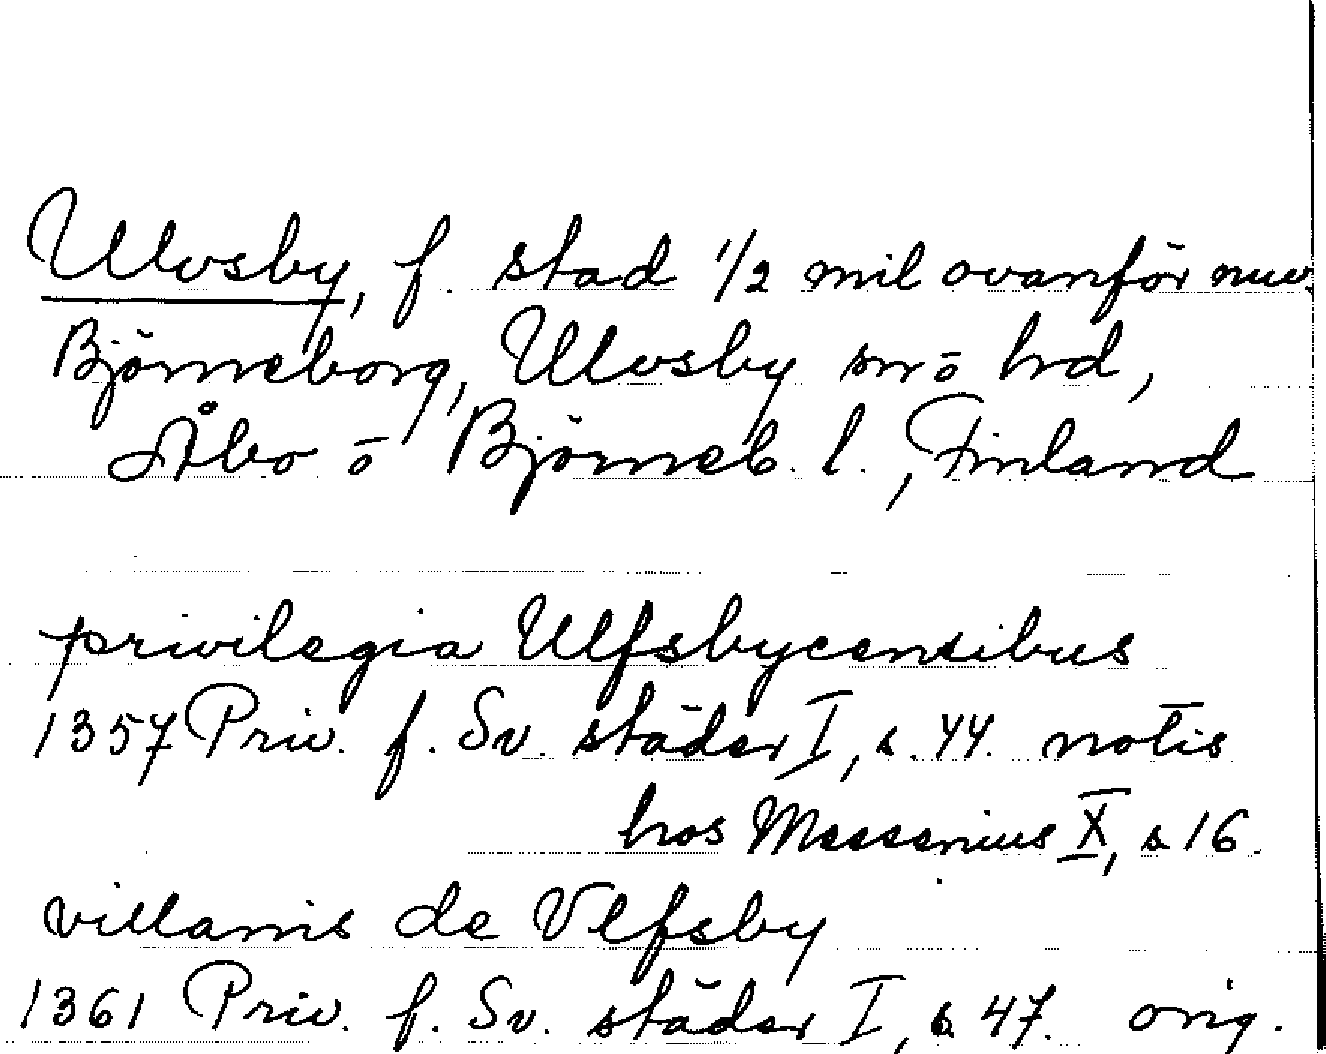 Ulvsby, f. stad 1/2 mil ovanför nuv.
Björneborg, Ulvsby sn o hd,
Åbo o Björneb. l., Finland
privilegia Ulfsbycensibus
1357 Priv. f. Sv. städer I, s. 44. notis
hos Messenius X, s 16.
villanis de Vlfsby
1361 Priv. f. Sv. städer I, s. 47. orig.